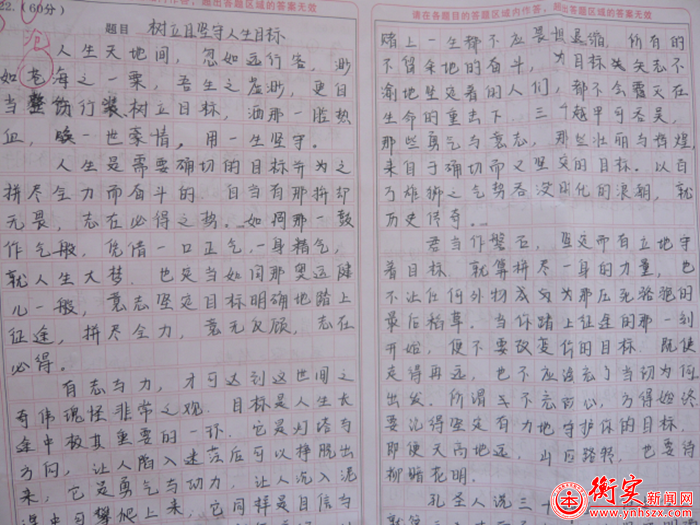 22.（60分）
超出答题区域的答案无效
请在各题目的答题区域内作答，超出答题区域的答案无效
沧
题目 树立且坚守人生目标
人生天地间，忽如远行客，渺
如苍海之一粟，吾生之虚渺，更自
当整饬行装树立目标，洒那一腔热
血，唤一世豪情，用一生坚守。
人生是需要确切的目标并为之
拼尽全力而奋斗的．自当有那拼却
无畏，志在必得之势．如同那一鼓
作气般，凭借一口正气，一身精气，
就人生大梦．也是当如同那奥运健
儿一般，意志坚定目标明确地踏上
征途，拼尽全力，义无反顾，志在
必得。
有志与力，才可达到这世间之
奇伟瑰怪非常之观．目标是人生长
途中极其重要的一环．它是灯塔与
方向，让人陷入迷茫后可以挣脱出
来，它是勇气与动力，让人沉入泥
潭中可攀爬上来，它同样是自信与
赌上一生都不应畏惧退缩．所有的
不留余地的奋斗，为目标矢志不
渝地坚定着的人们，都不会覆灭在
生命的重击下．三千越甲可吞吴，
那些勇气与意志，那些壮丽与辉煌，
来自于确切而又坚定的目标．以百
万雄狮之气势吞没时代的浪潮，就
历史传奇．
君当作磐石，坚定而有立地守
着目标．就算拼尽一身的力量，也
不让任何外物成为那压死骆驼的
最后稻草．当你踏上征途的那一刻
开始，便不要改变你的目标．既使
走得再远，也不应该忘了当初为何
出发．所谓 不忘初心，方得始终．
要记得坚定有力地守护你的目标．
即便天高地远，山回路转，也要待
柳暗花明．
孔圣人说三十
衡实新闻网
www.ynhszx.com